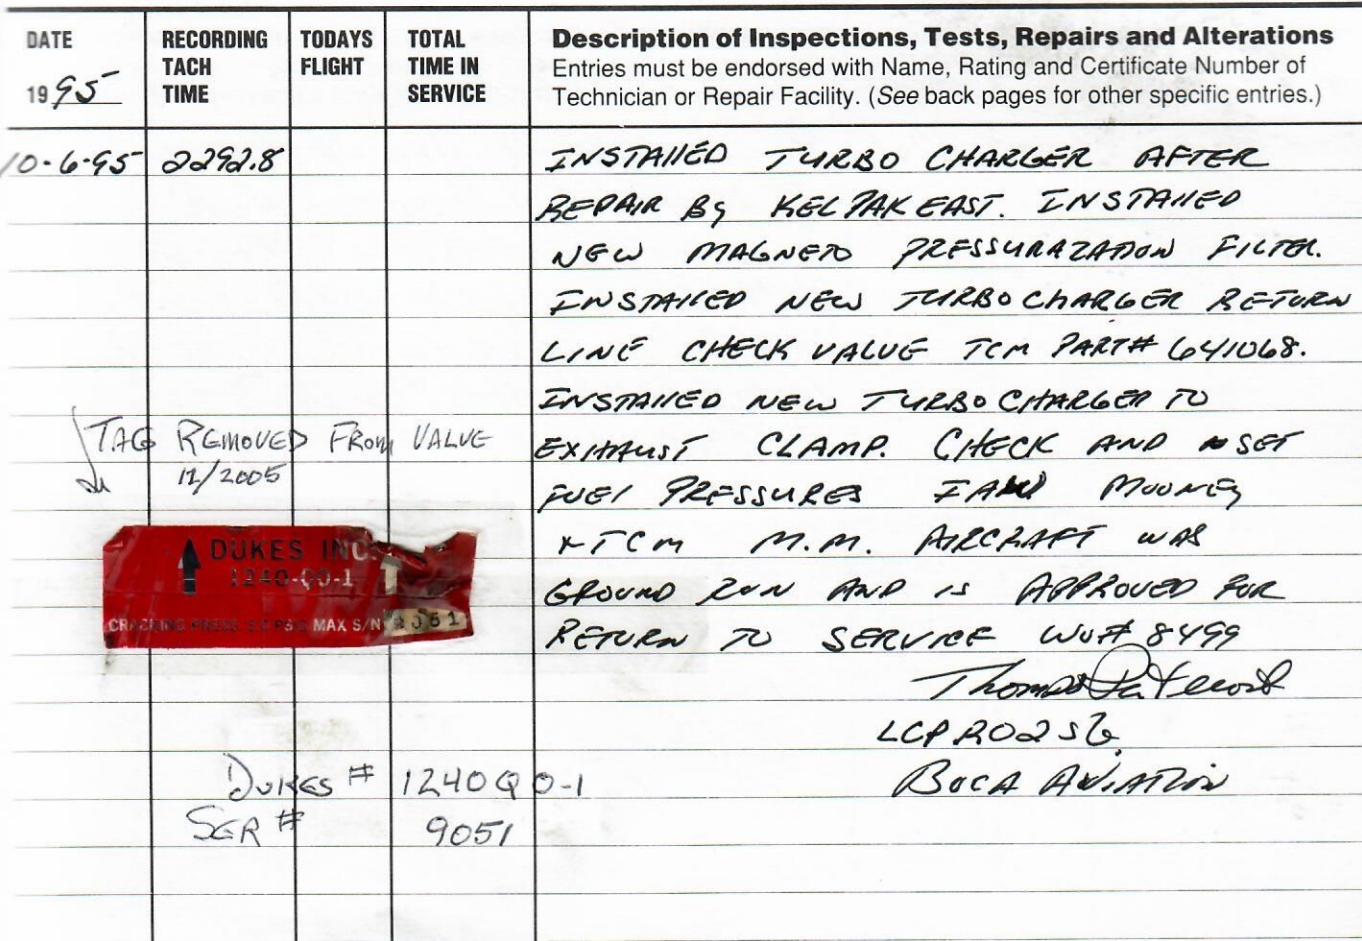 DATE
1995
RECORDING
TACH
TIME
TODAYS
FLIGHT
TOTAL
TIME IN
SERVICE
Description of Inspections, Tests, Repairs and Alterations
Entries must be endorsed with Name, Rating and Certificate Number of
Technician or Repair Facility. (See back pages for other specific entries.)
10-6-95 2292.8 INSTALLED TURBO CHARGER AFTER
REPAIR By KELPAK EAST. INSTALLED
NEW MAGNETO PRESSURAZATION FILTER.
INSTALLED NEW TURBOCHARGER RETURN
LINE CHECK VALUE TCM PART# 641068.
INSTALLED NEW TURBOCHARGER TO
EXHAUST CLAMP. CHECK AND SET
FUEL PRESSURES IAW MOONEY
+ TCM M.M. AIRCRAFT WAS
GROUND RUN AND IS APPROVED FOR
RETURN TO SERVICE WO# 8499
Thomas
LCPR025G
BOCA AVIATION
TAG REMOVED FROM VALVE
12/2005
DUKES INC
1240-00-1
CRACKING PRESS. PSIG MAX S/N 9051
DUKES # 1240Q0-1
SER # 9051